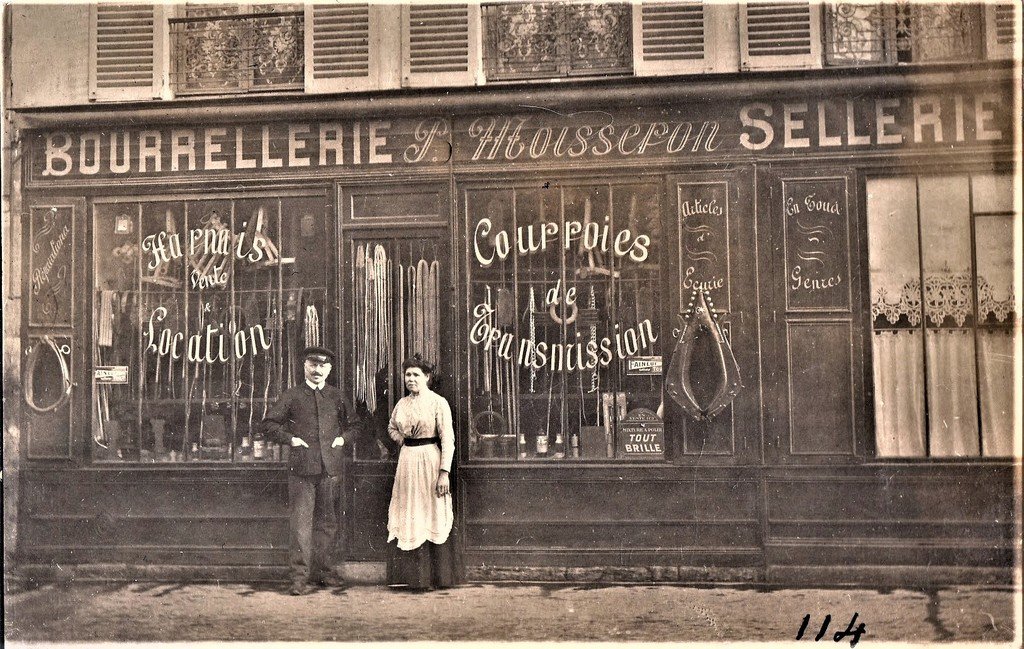 BOURRELLERIE P. Moisseron SELLERIE
Réparations
Harnais
Vente
&
Location
Courroies
de
Transmission
Articles
d'
Ecurie
En Tous
Genres
MIXTURE À POLIR
TOUT
BRILLE
114